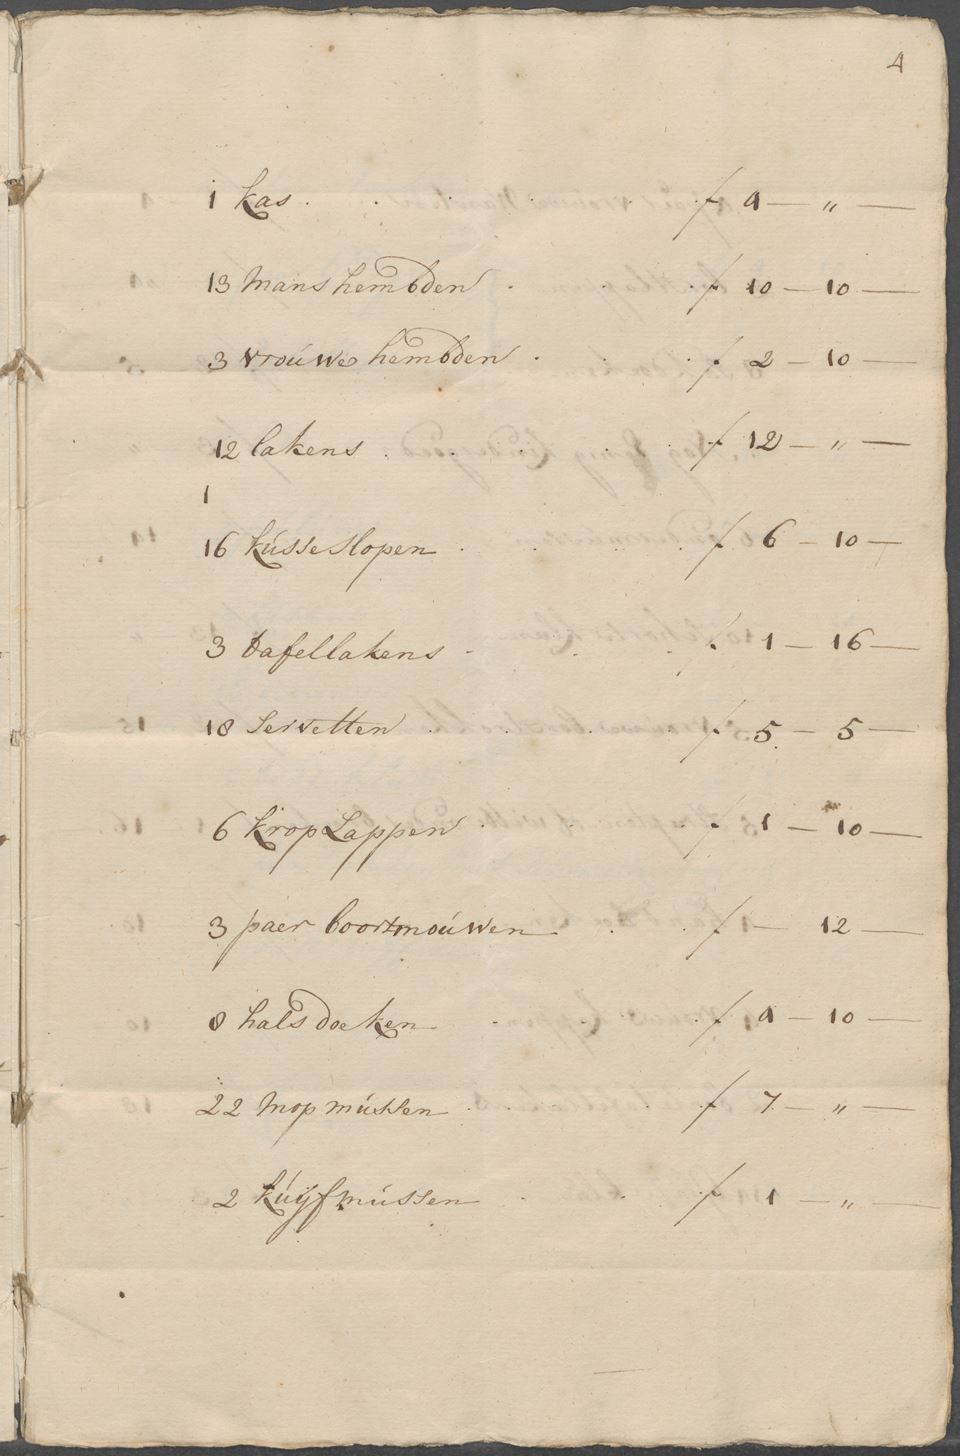 4
1 kas . . . . . f 4 — „ —
13 Mans hembden . . . f 10 — 10 —
3 vroúwe hembden . . . f 2 — 10 —
12 lakens . . . . f 12 — „ —
1
16 kússeslopen . . . . f 6 — 10 —
3 tafellakens . . . f 1 — 16 —
18 Servetten . . . . f 5 — 5 —
6 krop Lappen . . . . f 1 — 10 —
3 paer boortmoúwen . . f — 12 —
8 halsdoeken . . . f 4 — 10 —
22 Mopmússen . . . f 7 — „ —
2 kúijfmússen . . . f 1 — „ —